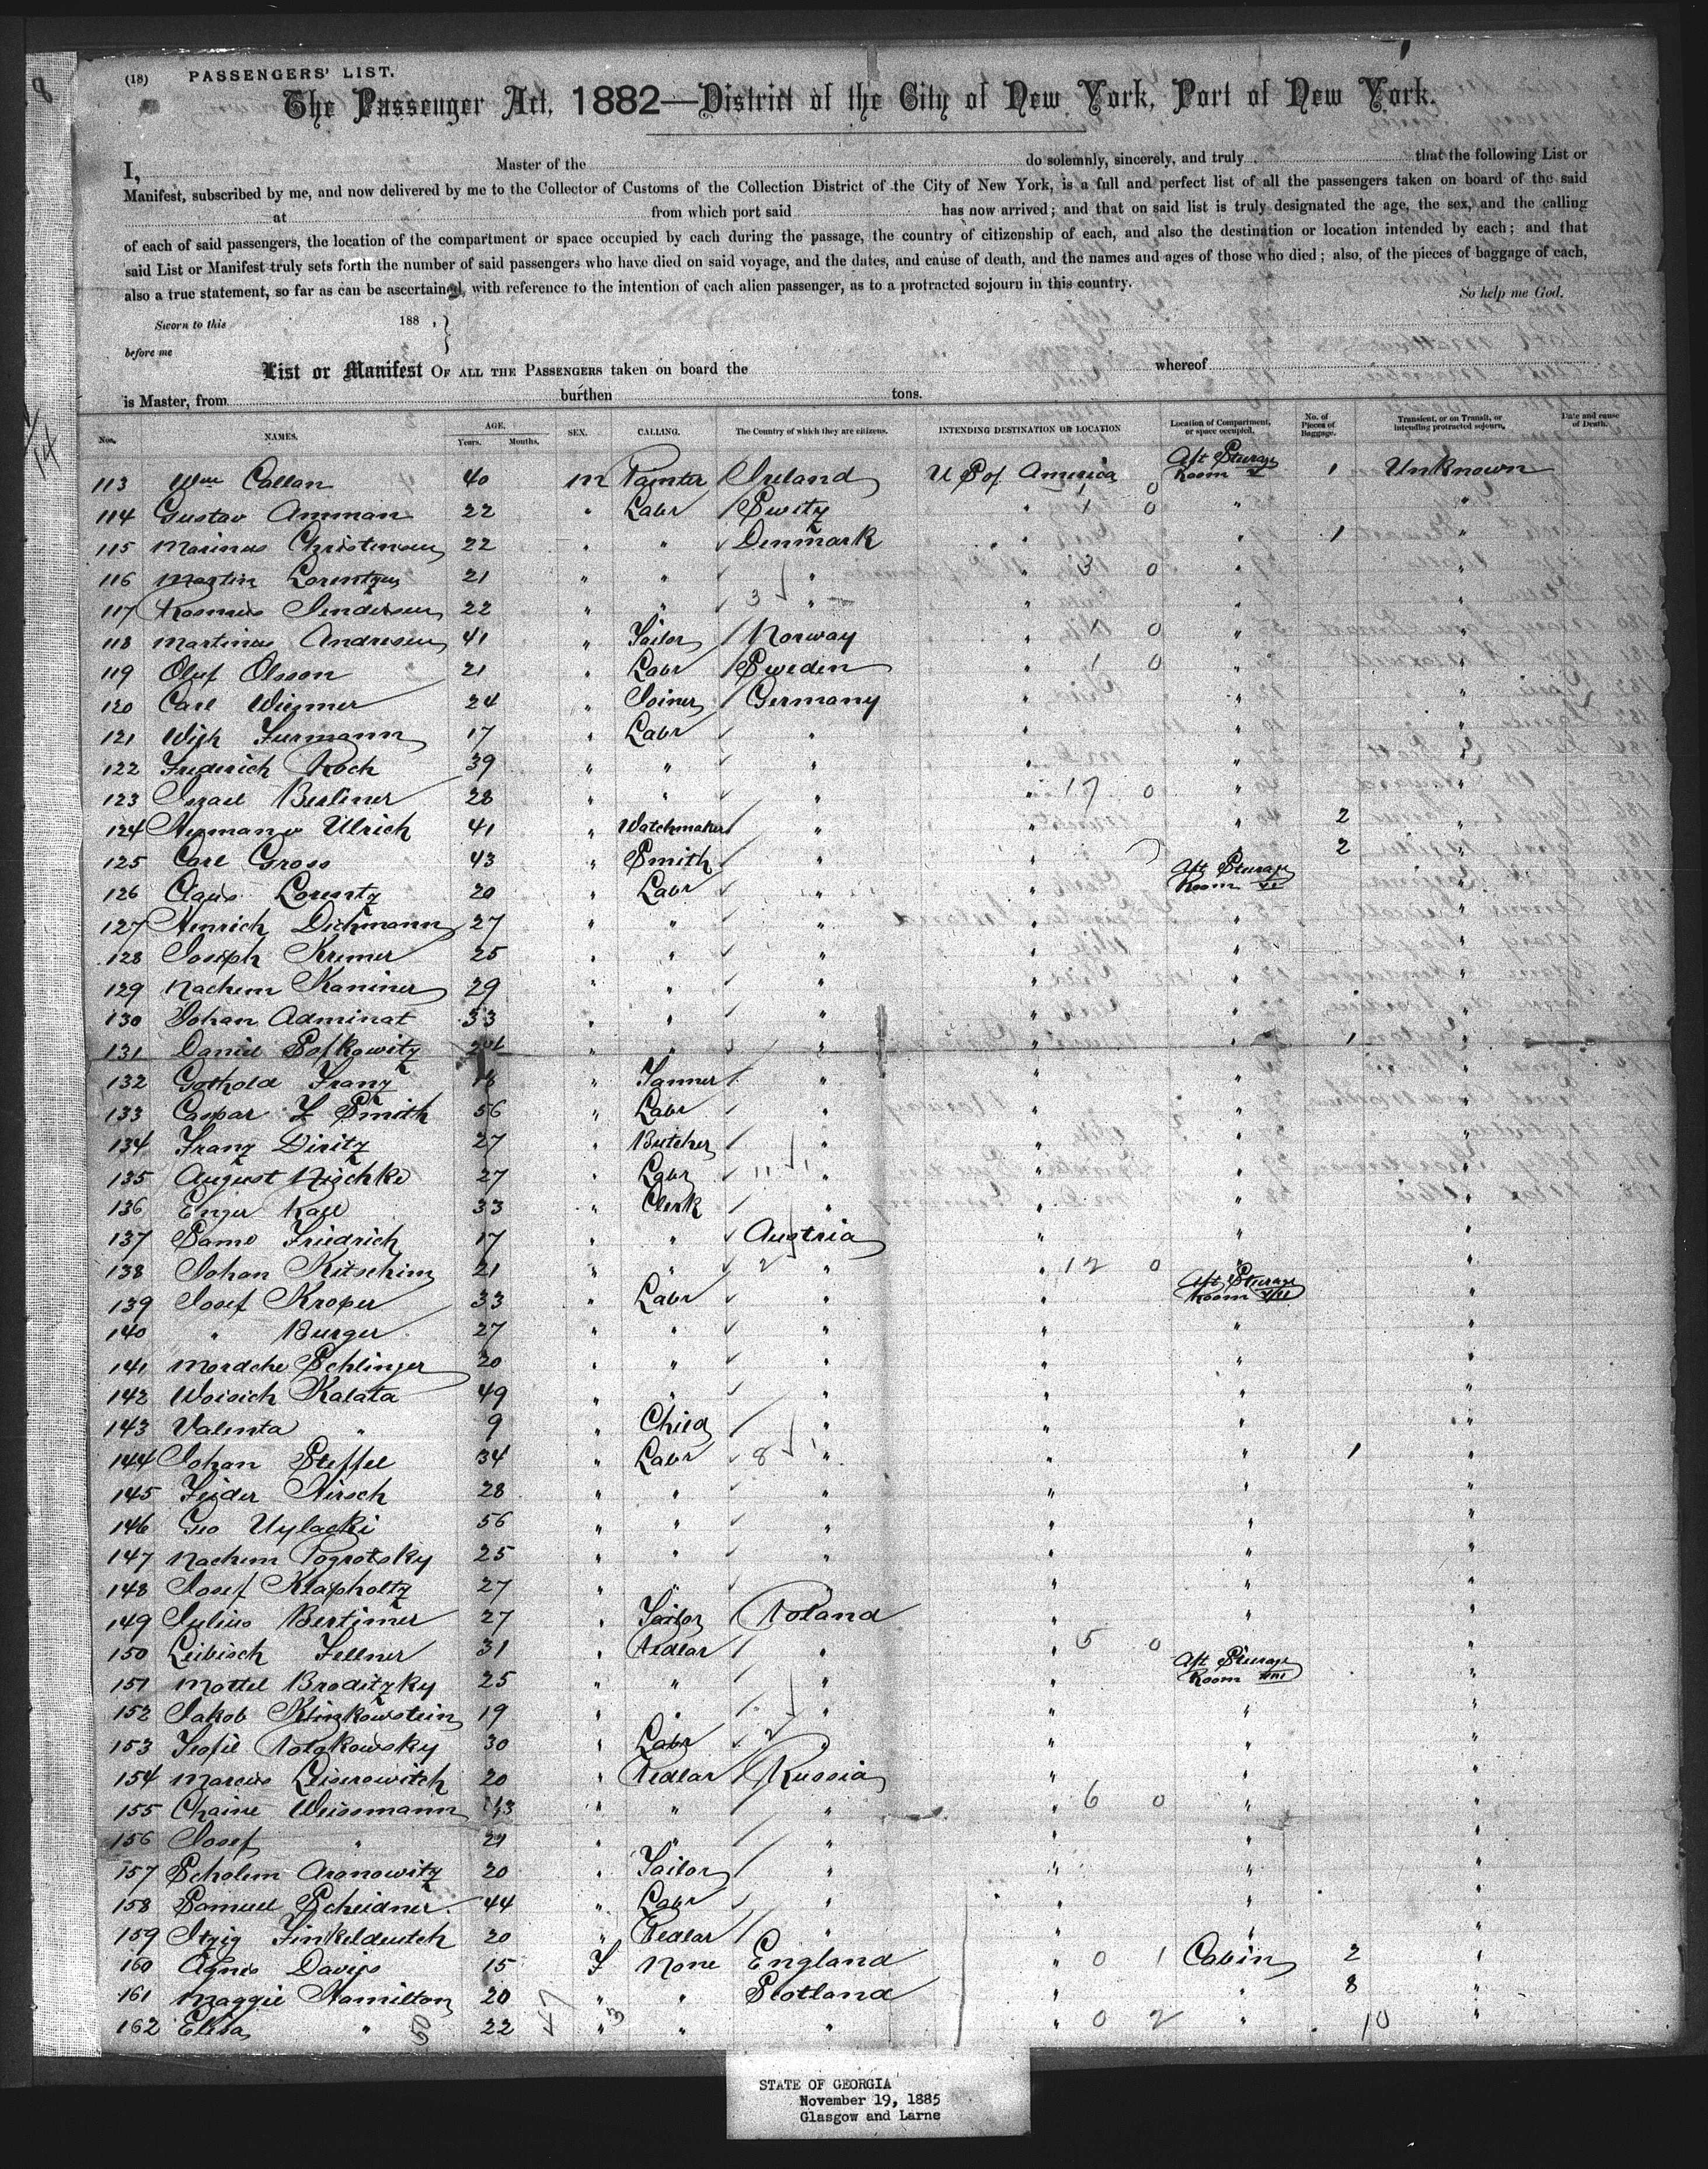 (18) PASSENGERS' LIST.
The Passenger Act, 1882—District of the City of New York, Port of New York.
I, Master of the do solemnly, sincerely, and truly that the following List or
Manifest, subscribed by me, and now delivered by me to the Collector of Customs of the Collection District of the City of New York, is a full and perfect list of all the passengers taken on board of the said
at from which port said has now arrived; and that on said list is truly designated the age, the sex, and the calling
of each of said passengers, the location of the compartment or space occupied by each during the passage, the country of citizenship of each, and also the destination or location intended by each; and that
said List or Manifest truly sets forth the number of said passengers who have died on said voyage, and the dates, and cause of death, and the names and ages of those who died; also, of the pieces of baggage of each,
also a true statement, so far as can be ascertained, with reference to the intention of each alien passenger, as to a protracted sojourn in this country. So help me God.
Sworn to this 188 , }
before me
List or Manifest OF ALL THE PASSENGERS taken on board the whereof
is Master, from burthen tons.
Nos. NAMES. AGE. Years. Months. SEX. CALLING. The Country of which they are citizens. INTENDING DESTINATION OR LOCATION Location of Compartment, or space occupied. No. of Pieces of Baggage. Transient, or on Transit, or intending protracted sojourn. Date and cause of Death.
113 Wm Callan 40 M Painter Ireland U S of America Aft Sturage Room V 1 Unknown
114 Gustav Amman 22 " Labr Switz " 1 0 " "
115 Marinus Christensen 22 " " Denmark " " 1 "
116 Martin Lorentzen 21 " " " " 3 0 " "
117 Rasmus 22 " " 3 " " " "
118 Martinus Andresen 41 " Tailor Norway " 1 0 " "
119 Oluf Olsson 21 " Labr Sweden " 1 0 " "
120 Carl Wiemer 24 " Joiner Germany " " "
121 Furmann 17 " Labr " " " "
122 Frederich Koch 39 " " " " " "
123 Israel Berliner 28 " " " " 17 0 " "
124 Hermann Ulrich 41 " Watchmaker " " " 2 "
125 Carl Gross 43 " Smith " " 2 "
126 Claus Lorentz 20 " Labr " " Aft Sturage Room VI "
127 Heinrich Dichmann 27 " " " " " "
128 Joseph Kremer 25 " " " " " "
129 Nachem Kaminer 29 " " " " " "
130 Johan Adminat 33 " " " " " "
131 Daniel Potkowitz " " " " " 1 "
132 Gothold Franz 18 " Tanner " " " "
133 Caspar F Smith 56 " Labr " " " "
134 Franz Diritz 27 " Butcher " " " "
135 August Nischke 27 " Labr 11 " " " "
136 Enger Karl 33 " Clerk " " " "
137 Friedrich 17 " " Austria " " "
138 Johan Kitschim 21 " " 2 " " 12 0 " "
139 Josef Kroper 33 " Labr " " Aft Sturage Room VII "
140 " Burger 27 " " " " " "
141 Mordche Schlinger 20 " " " " " "
142 Woisich Kalata 49 " " " " " "
143 Valenta " 9 " Child " " " "
144 Johan Steffel 34 " Labr 8 " " " 1 "
145 Feider Hirsch 28 " " " " " "
146 Geo Uylacki 56 " " " " " "
147 Nachem Pogrotsky 25 " " " " " "
148 Josef Klapholtz 27 " " " " " "
149 Julius Bertimer 27 " Tailor Poland " " "
150 Leibisch Fellner 31 " Pedlar " " 5 0 "
151 Mottel Broditzky 25 " " " " Aft Sturage Room VIII "
152 Jakob Klinkowstein 19 " " " " " "
153 Teofil Potokowsky 30 " Labr 2 " " " "
154 Marcus Leiserowitch 20 " Pedlar Russia " " "
155 Chaine Weissmann " " " " 6 0 " "
156 Josef " 21 " " " " " "
157 Scholem Aronowitz 20 " Tailor " " " "
158 Samuel Scheidner 44 " Labr " " " "
159 Itzig Finkeldeutch 20 " Pedlar " " " "
160 Agnes Davies 15 F None England " 0 1 Cabin 2 "
161 Maggie Hamilton 20 " " Scotland " 8 "
162 Eliza " 22 " " " " 0 2 " 10 "
STATE OF GEORGIA
November 19, 1885
Glasgow and Larne